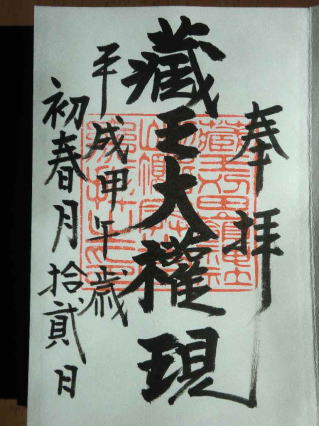 奉拝
藏王大權現
平成甲午歳
初春月拾貳日